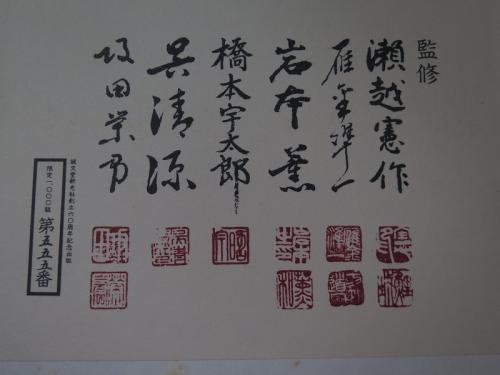 監修
瀬越憲作
雁金準一
岩本薫
橋本宇太郎
呉清源
坂田栄男
誠文堂新光社創立六〇周年記念出版
限定一、〇〇〇組
第五五五番